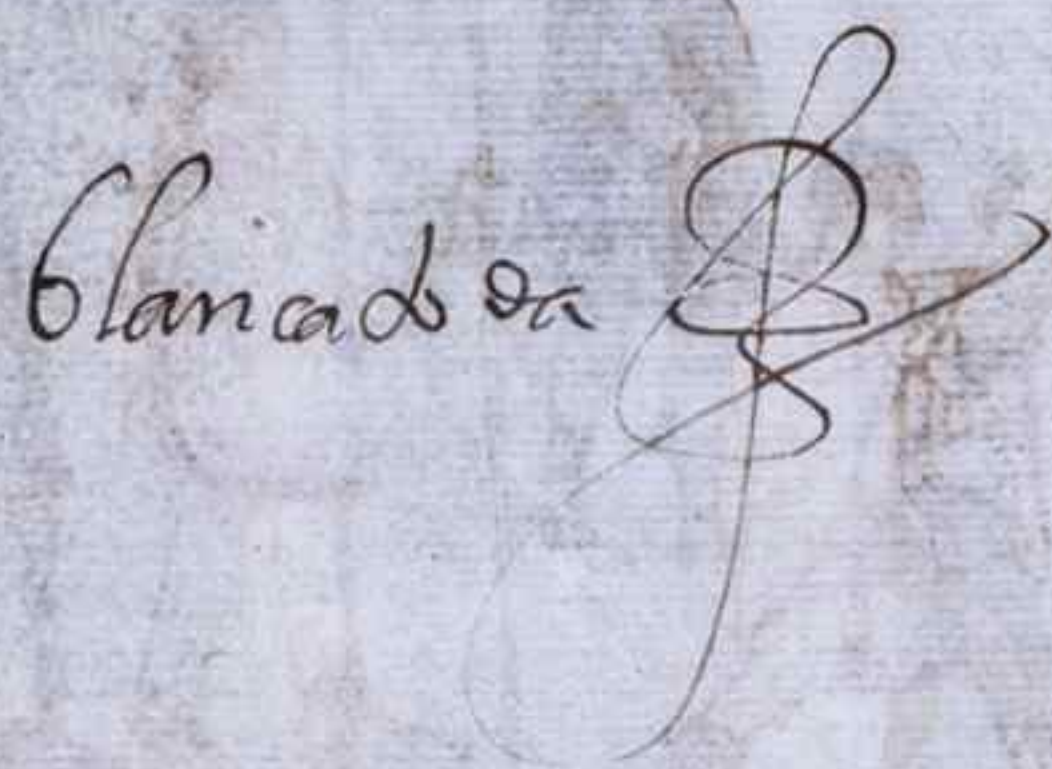 blancado da